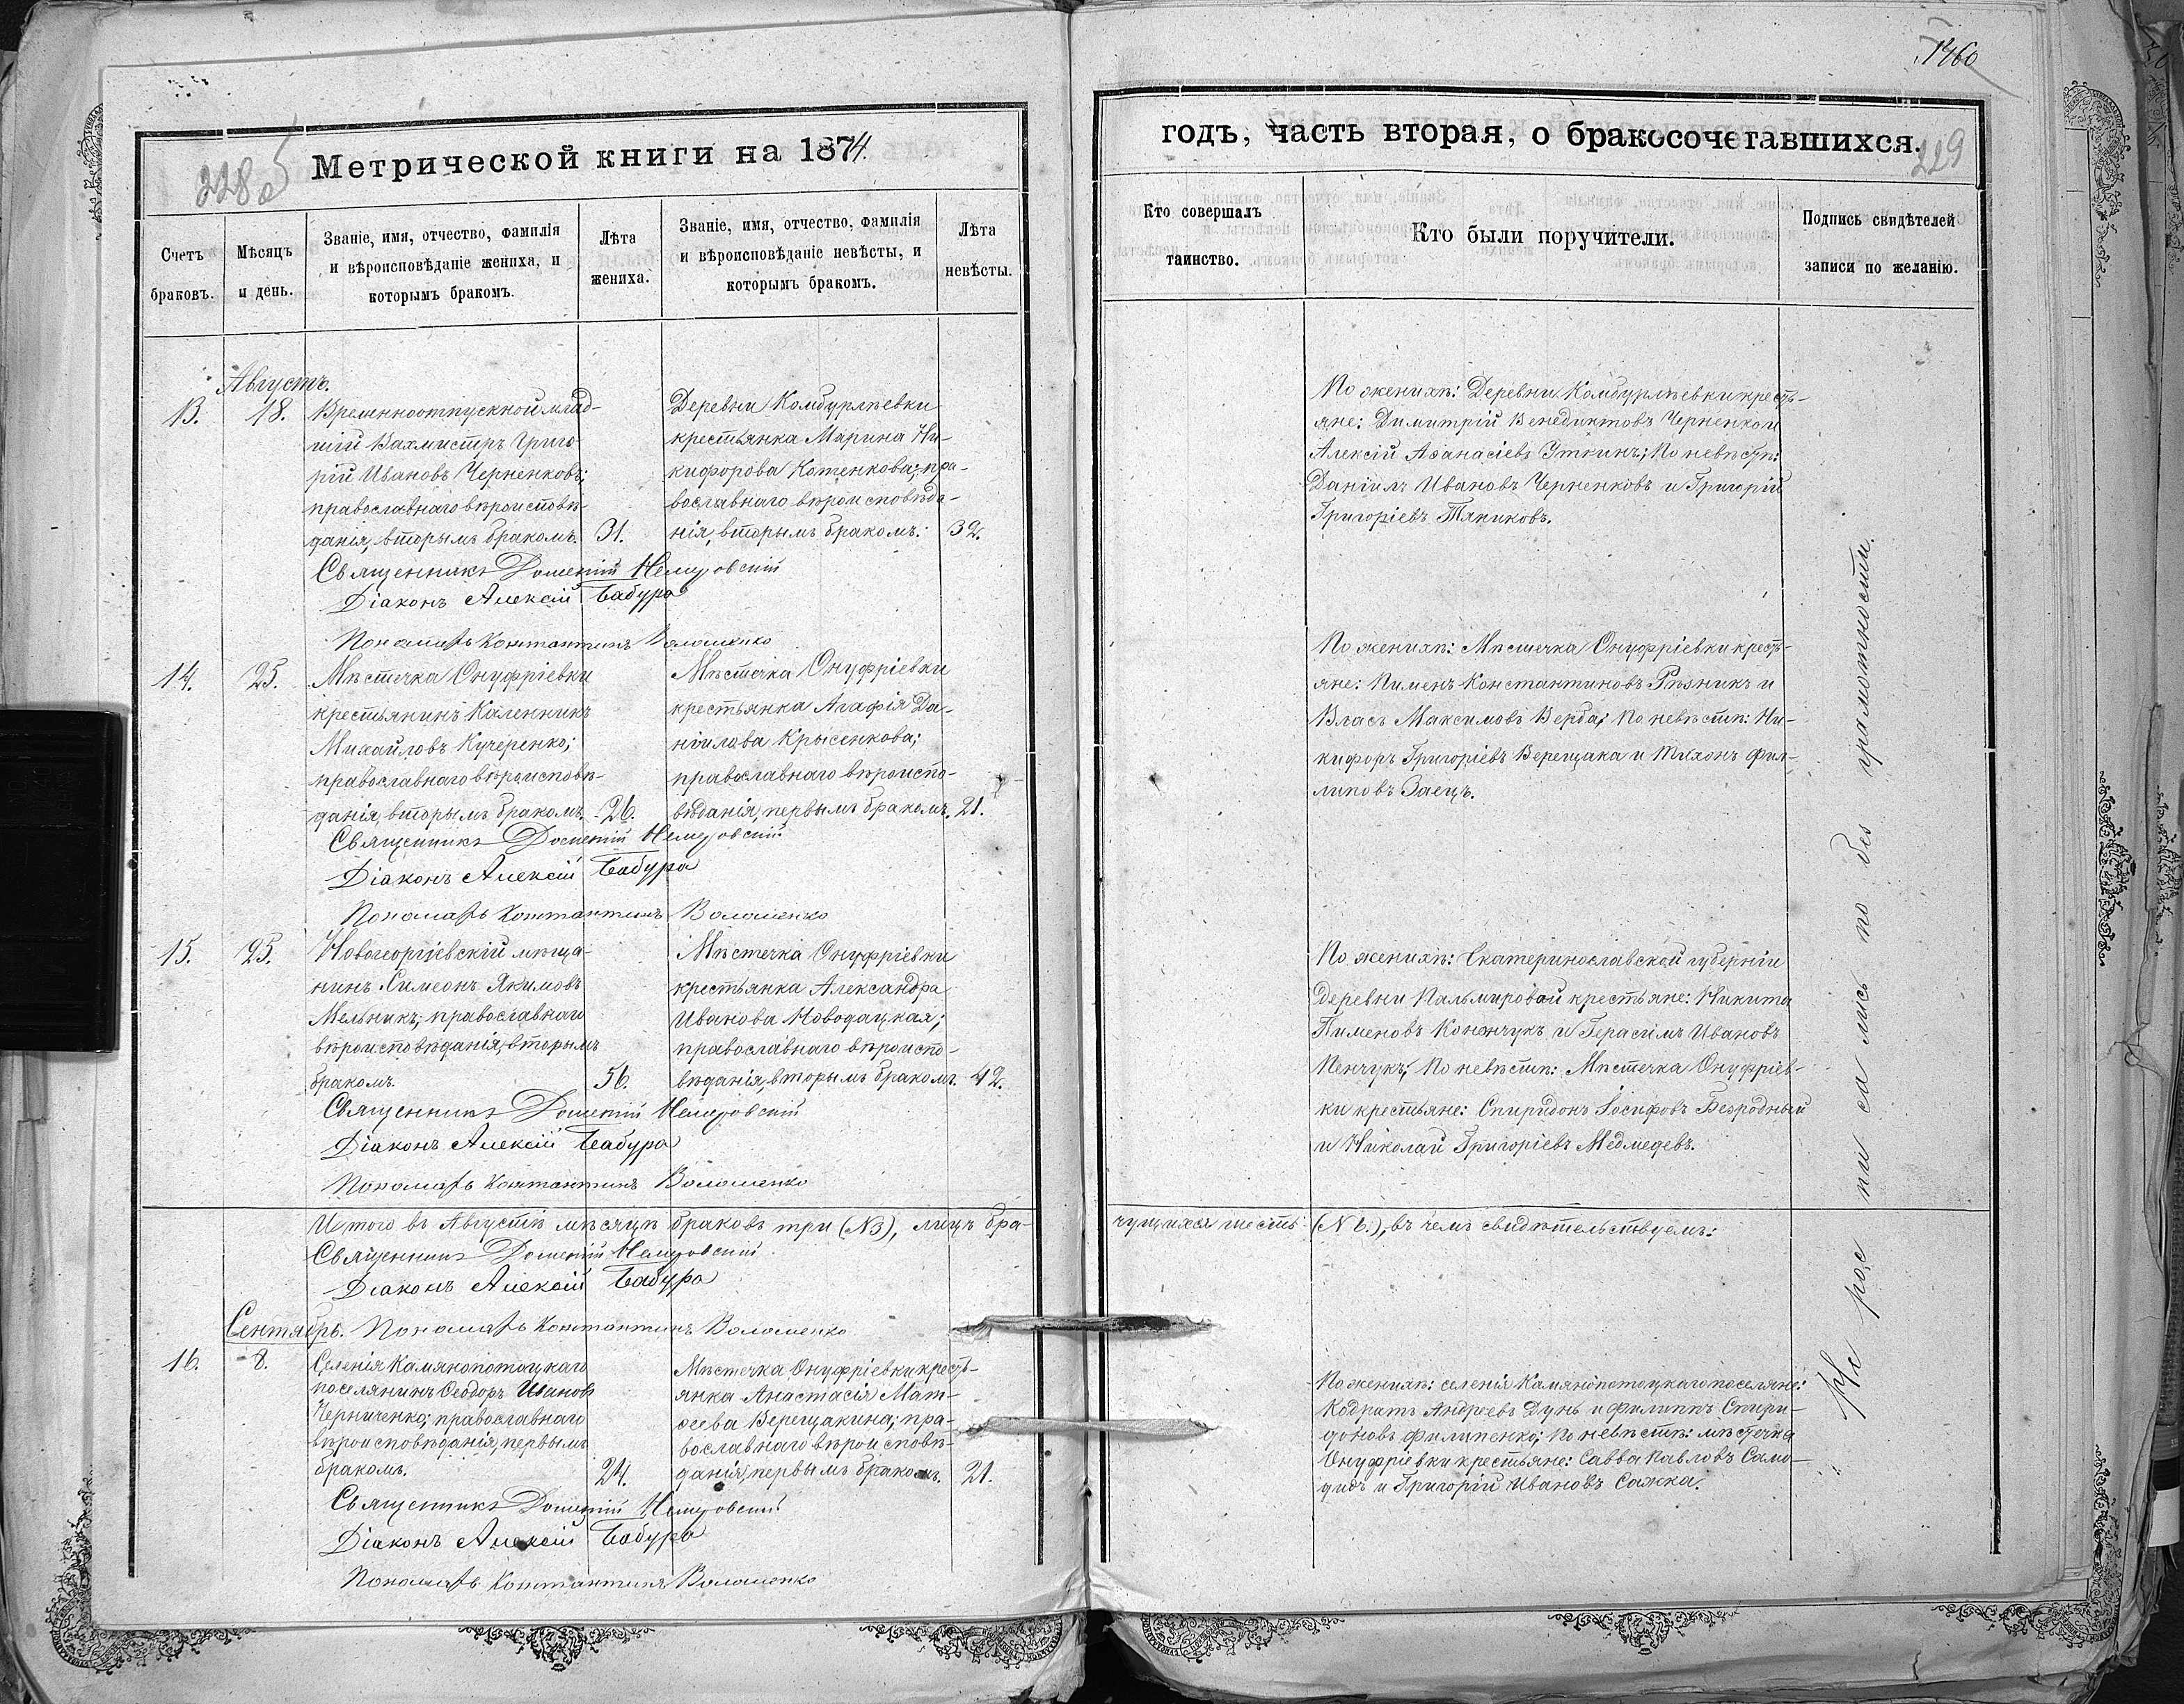 Метрической книги на 1874.
228 об
Счетъ браковъ.
Мѣсяцъ и день.
Званіе, имя, отчество, фамилія
и вѣроисповѣданіе жениха, и
которымъ бракомъ.
Лѣта жениха.
Званіе, имя, отчество, фамилія
и вѣроисповѣданіе невѣсты, и
которымъ бракомъ.
Лѣта невѣсты.
Августъ.
13.
18.
Временноотпускной млад-
шій Вахмистръ Григо-
рій Ивановъ Черненковъ;
православнаго вѣроисповѣ-
данія, вторымъ бракомъ.
31.
Деревни Комбурлѣевки
крестьянка Марина Ни-
кифорова Котенкова; пра-
вославнаго вѣроисповѣда-
нія, вторымъ бракомъ:
32.
Священникъ Дометій Немировскій
Діаконъ Алексій Бабура
Пономарь Константинъ Волошенко
14.
25.
Мѣстечка Онуфріевки
крестьянинъ Каленникъ
Михайловъ Кучеренко;
православнаго вѣроисповѣ-
данія, вторымъ бракомъ.
26.
Мѣстечка Онуфріевки
крестьянка Агафія Да-
ніилова Крысенкова;
православнаго вѣроиспо-
вѣданія, первымъ бракомъ.
21.
Священникъ Дометій Немировскій
Діаконъ Алексій Бабура
Пономарь Константинъ Волошенко
15.
25.
Новогеоргіевскій мѣща-
нинъ Симеонъ Якимовъ
Мельникъ; православнаго
вѣроисповѣданія, вторымъ
бракомъ.
56.
Мѣстечка Онуфріевки
крестьянка Александра
Иванова Новодацкая;
православнаго вѣроиспо-
вѣданія, вторымъ бракомъ.
42.
Священникъ Дометій Немировскій
Діаконъ Алексій Бабура
Пономарь Константинъ Волошенко
Итого въ Августѣ мѣсяцѣ браковъ три (№3), лицъ бра-
Священникъ Дометій Немировскій
Діаконъ Алексій Бабура
Сентябрь. Пономарь Константинъ Волошенко
16.
8.
Селенія Камянопотоцкаго
поселянинъ Ѳеодоръ Ивановъ
Черниченко; православнаго
вѣроисповѣданія, первымъ
бракомъ.
24.
Мѣстечка Онуфріевки кресть-
янка Анастасія Мат-
ѳеева Верещакина; пра-
вославнаго вѣроисповѣ-
данія, первымъ бракомъ.
21.
Священникъ Дометій Немировскій
Діаконъ Алексій Бабура
Пономарь Константинъ Волошенко
1460
годъ, часть вторая, о бракосочетавшихся.
229
Кто совершалъ
таинство.
Кто были поручители.
Подпись свидѣтелей
записи по желанію.
По женихѣ: Деревни Комбурлѣевки кресть-
яне: Димитрій Венедиктовъ Черненко и
Алексій Аѳанасіевъ Уткинъ; По невѣстѣ:
Даніилъ Ивановъ Черненковъ и Григорій
Григоріевъ Тяниковъ.
По женихѣ: Мѣстечка Онуфріевки кресть-
яне: Пименъ Константиновъ Рѣзникъ и
Власъ Максимовъ Верба; По невѣстѣ: Ни-
кифоръ Григоріевъ Верещака и Тихонъ Фил-
липовъ Заецъ.
По женихѣ: Екатеринославской губерніи
деревни Пальмировой крестьяне: Никита
Пименовъ Конончукъ и Герасимъ Ивановъ
Пенчукъ; По невѣстѣ: Мѣстечка Онуфріев-
ки крестьяне: Спиридонъ Іосифовъ Безродный
и Николай Григоріевъ Медмедевъ.
чущихся шесть (№6.), въ чемъ свидѣтельствуемъ:
По женихѣ: селенія Камянопотоцкаго поселяне:
Кодратъ Андреевъ Дунь и Филиппъ Спири-
доновъ Филипенко; По невѣстѣ: мѣстечка
Онуфріевки крестьяне: Савва Павловъ Само-
дидъ и Григорій Ивановъ Сажка.
Не рос пи са лись по без грамотности.